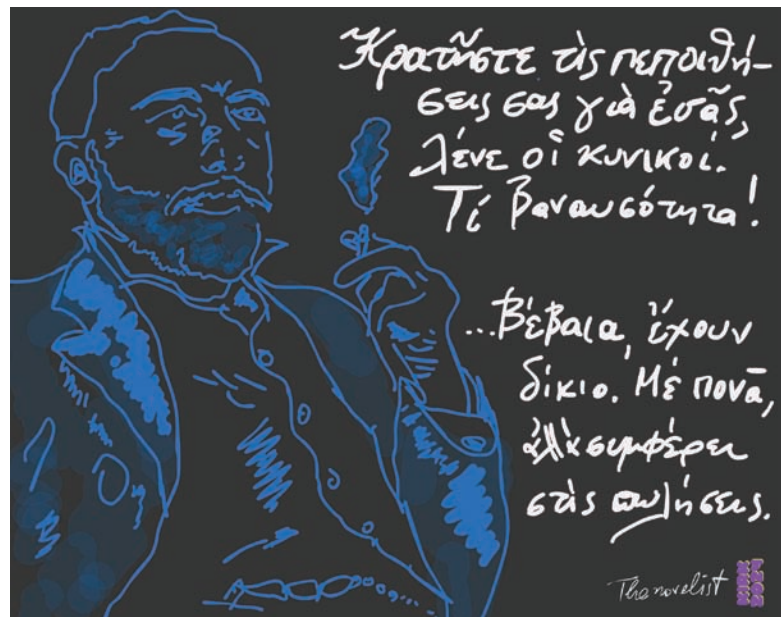 Κρατῆστε τὶς πεποιθή-
σεις σας γιὰ ἐσᾶς,
λένε οἱ κυνικοί.
Τί βαναυσότητα!
...Βέβαια, ἔχουν
δίκιο. Μὲ πονᾶ,
ἀλλὰ συμφέρει
στὶς πωλήσεις.
Thenovelist